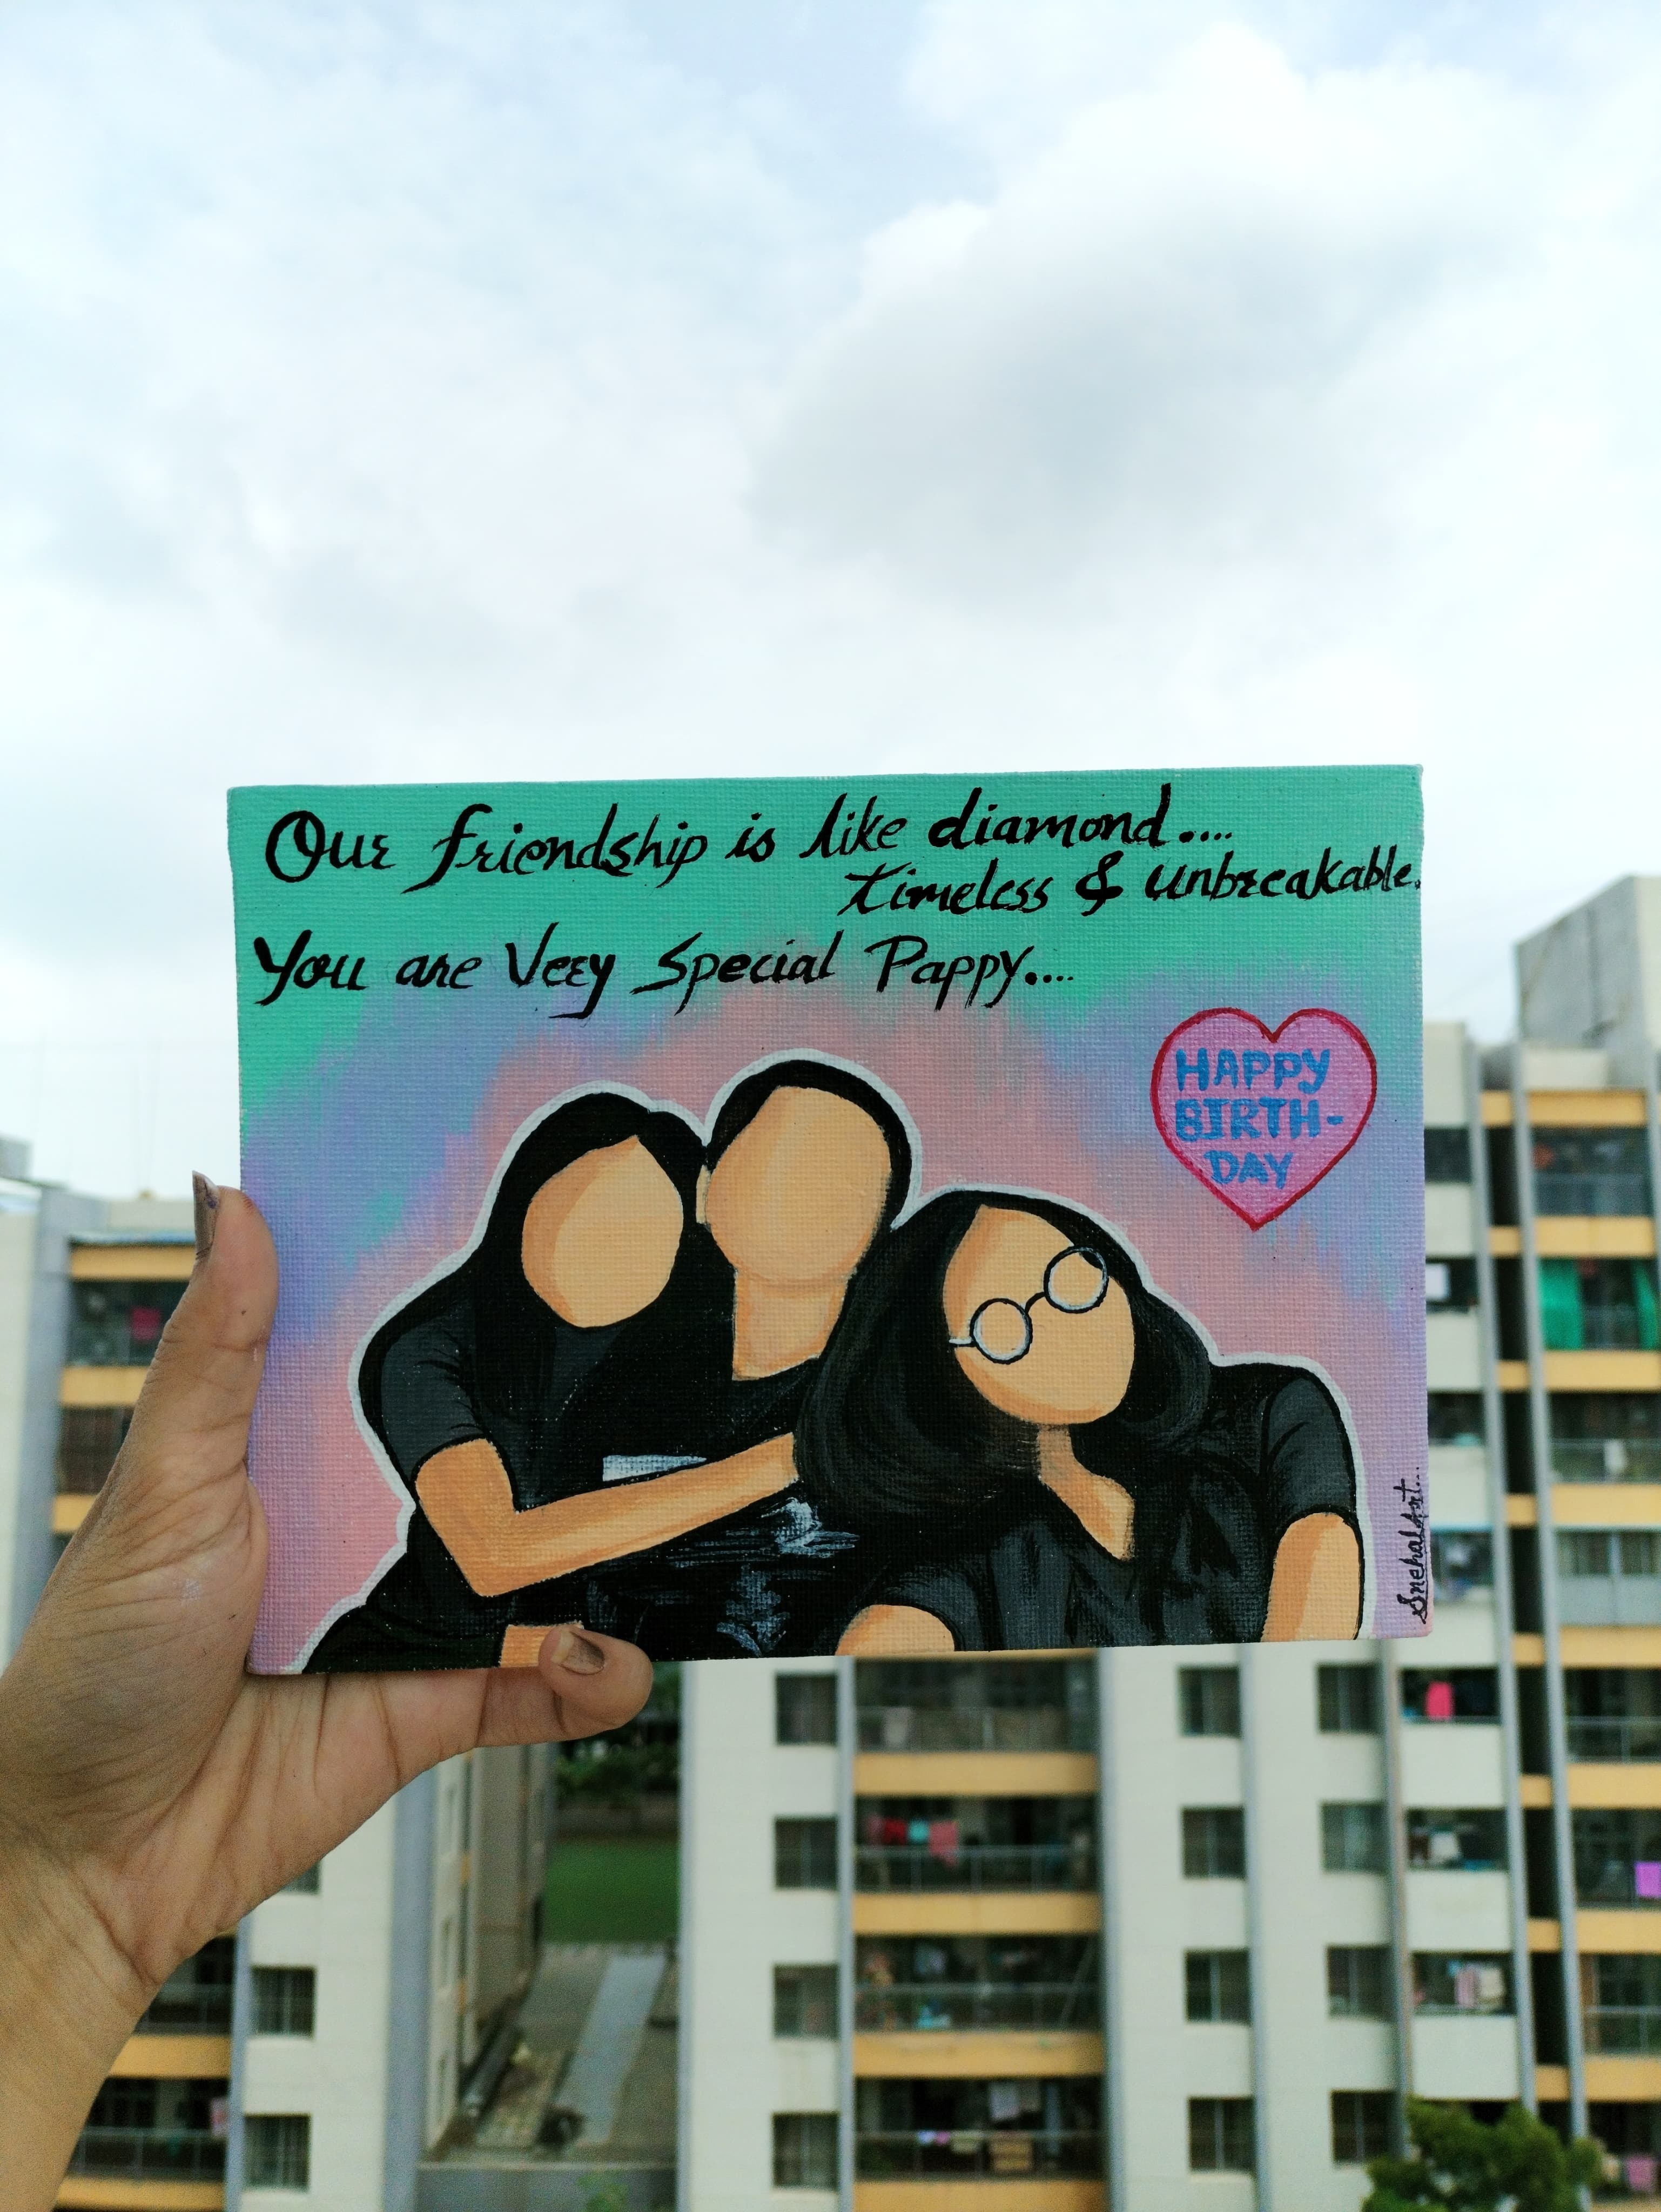 Our friendship is like diamond....
timeless & unbreakable.
You are Very Special Pappy....
HAPPY
BIRTH-
DAY
SnehalArt...